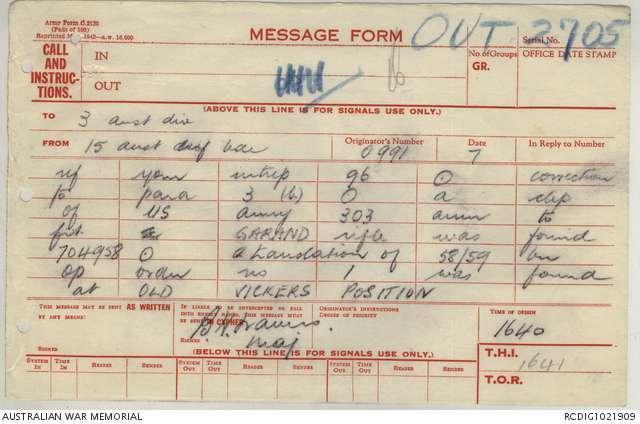 Army Form C.2130
(Pads of 100)
Reprinted 1942—a.w. 16,000
MESSAGE FORM
OUT 2705
Serial No.
CALL AND INSTRUCTIONS.
IN
OUT
No. of Groups
GR.
OFFICE DATE STAMP
(ABOVE THIS LINE IS FOR SIGNALS USE ONLY.)
TO 3 aust div
FROM 15 aust bde
Originator's Number 0991
Date 7
In Reply to Number
ref your intrep 96 O correction
to para 3 (b) O a clip
of US army 303 amn to
fit GARAND rifle was found
704958 O a translation of 58/59 bn
op order no 1 was found
at OLD VICKERS POSITION
THIS MESSAGE MAY BE SENT AS WRITTEN BY ANY MEANS:
SIGNED
IF LIABLE TO BE INTERCEPTED OR FALL INTO ENEMY HANDS, THIS MESSAGE MUST BE SENT IN CIPHER
SIGNED
Maj
ORIGINATOR'S INSTRUCTIONS
DEGREE OF PRIORITY
TIME OF ORIGIN
1640
(BELOW THIS LINE IS FOR SIGNALS USE ONLY.)
T.H.I. 1641
T.O.R.
SYSTEM IN TIME IN READER SENDER SYSTEM OUT TIME OUT READER SENDER SYSTEM OUT TIME OUT READER SENDER
AUSTRALIAN WAR MEMORIAL
RCDIG1021909